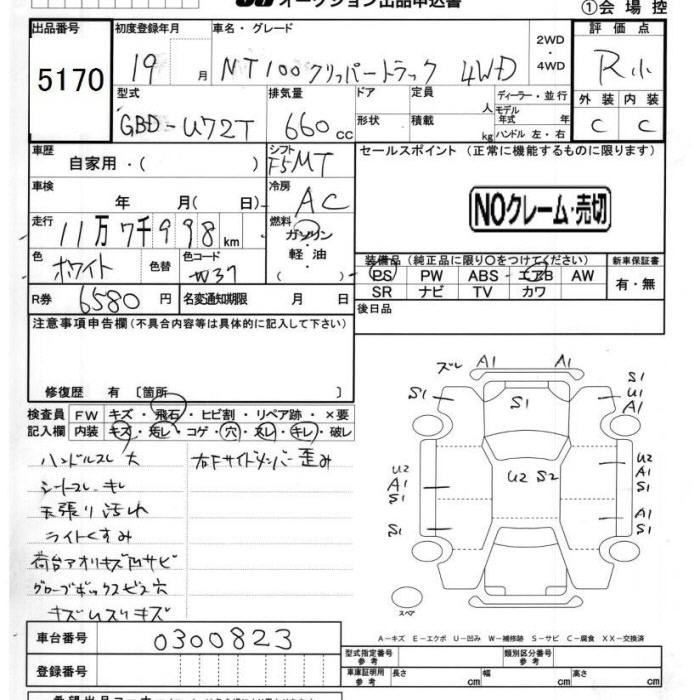 オークション出品申込書
①会場控
出品番号 5170
初度登録年月 19 月
車名・グレード NT100クリッパートラック 4WD
2WD・4WD
評価点 R小
外装 C 内装 C
型式 GBD-U72T
排気量 660 cc
ドア 形状
定員 人
積載 kg
ディーラー・並行
モデル年式 年
ハンドル 左・右
車歴 自家用・( )
シフト F5MT
車検 年 月( 日)
冷房 AC
走行 11万7千998 km
燃料 ガソリン・軽油 ( )
色 ホワイト 色替
色コード W37
R券 6580 円
名変通知期限 月 日
セールスポイント (正常に機能するものに限ります)
NOクレーム・売切
装備品 (純正品に限り〇をつけてください)
PS PW ABS エアB AW
SR ナビ TV カワ
新車保証書 有・無
後日品
注意事項申告欄 (不具合内容等は具体的に記入して下さい)
修復歴 有 〔箇所 〕
検査員記入欄
FW キズ・飛石・ヒビ割・リペア跡・×要
内装 キズ・汚レ・コゲ・穴・スレ・キレ・破レ
ハンドルスレ大
右Fサイドメンバー歪み
シートスレ キレ
天張り汚れ
ライトくすみ
荷台アオリキズ凹サビ
グローブボックスビス穴
ズレ A1 A1
S1 S1 S1 U1 A1
U2 A1 S1
U2 S2
U2 A1 S1
S1
A1 S1
スペア
A-キズ E-エクボ U-凹み W-補修跡 S-サビ C-腐食 XX-交換済
車台番号 0300823
登録番号
型式指定番号 参考
類別区分番号 参考
車庫証明用 参考
長さ cm 幅 cm 高さ cm